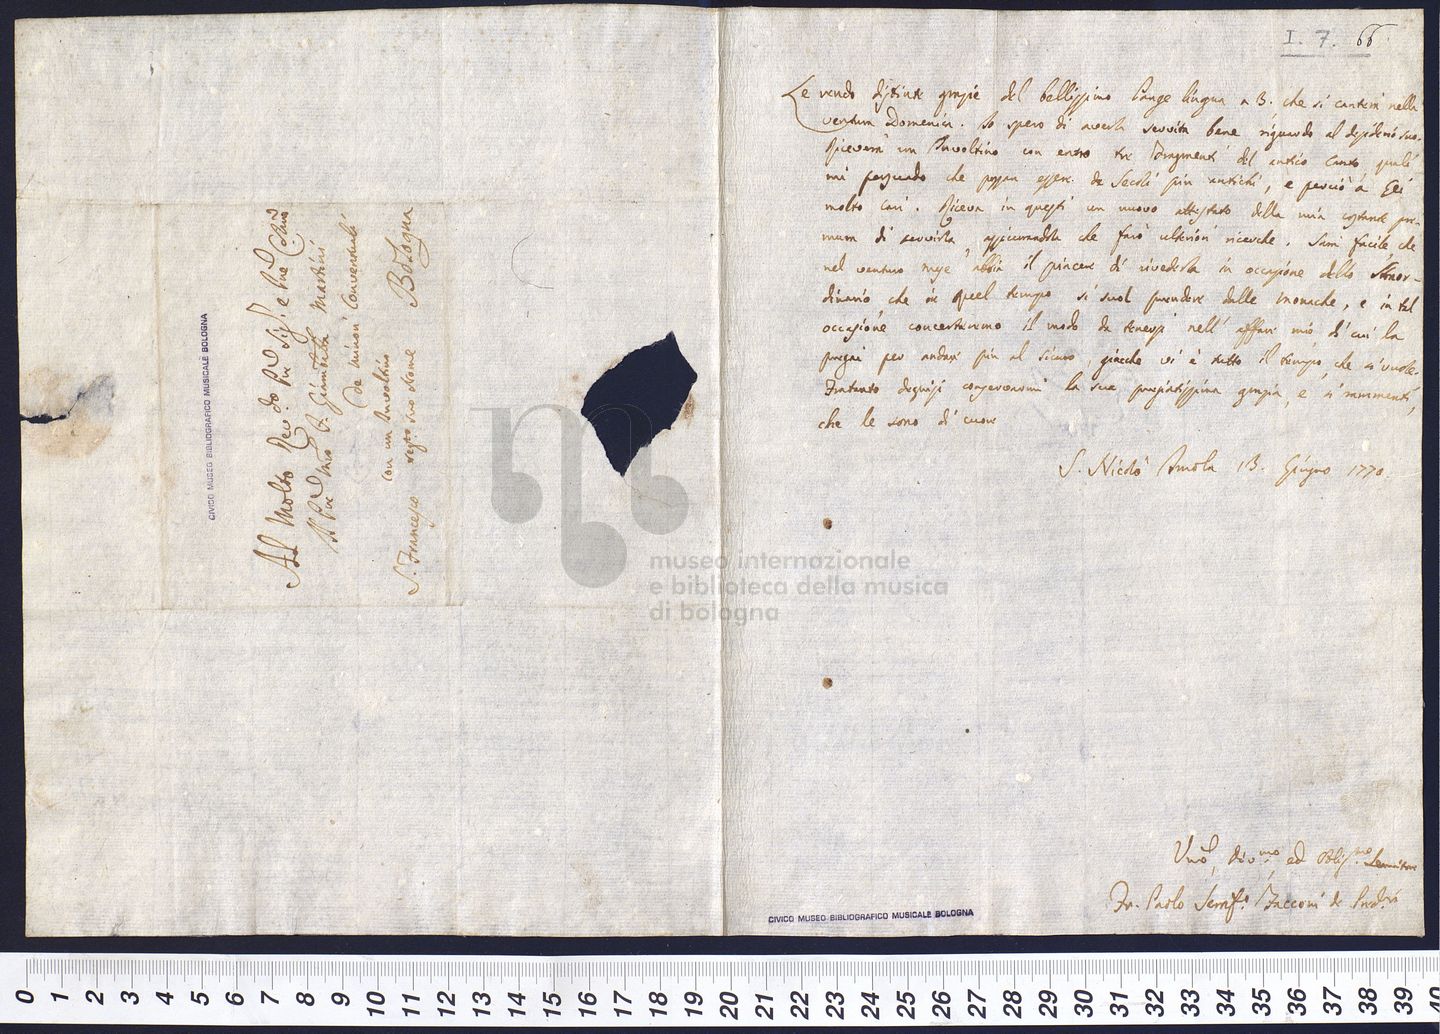 I. 7. 66
Le rendo distinte grazie del bellissimo Pange lingua a 3. che si canterà nella
ventura Domenica. Io spero di averla servita bene riguardo al desiderio suo.
Riceverà un Involtino con entro tre Fragmenti del antico Canto quali
mi persuado che possan essere de Secoli più antichi, e perciò a Lei
molto cari. Riceva in questi un nuovo attestato della mia costante pre-
mura di servirla, assicurandola che farò ulteriori ricerche. Sarà facile che
nel venturo mese abbia il piacere di rivederla in occasione dello Straor-
dinario che in quel tempo si suol prendere dalle Monache, e in tal
occasione concertaremo il modo da tenersi nell' affare mio di cui la
pregai per andare più al sicuro, giacche vi è tutto il tempo, che si vuole.
Frattanto degnisi conservarmi la sua pregiatissima grazia, e si rammenti,
che le sono di cuore
S. Nicolò Imola 13. Giugno 1770.
Dio.mo ed Obblig.mo Servitore
Fr. Paolo Seraf.o Facconi de Pred.ri
Al Molto Rev.do P.re Sig.re e P.ne
Il P.re Mro F. Giambatta Martini
De Minori Conventuali
con un Involtino
segto suo nome
S. Francesco Bologna
CIVICO MUSEO BIBLIOGRAFICO MUSICALE BOLOGNA
CIVICO MUSEO BIBLIOGRAFICO MUSICALE BOLOGNA
museo internazionale
e biblioteca della musica
di bologna
0 1 2 3 4 5 6 7 8 9 10 11 12 13 14 15 16 17 18 19 20 21 22 23 24 25 26 27 28 29 30 31 32 33 34 35 36 37 38 39 40